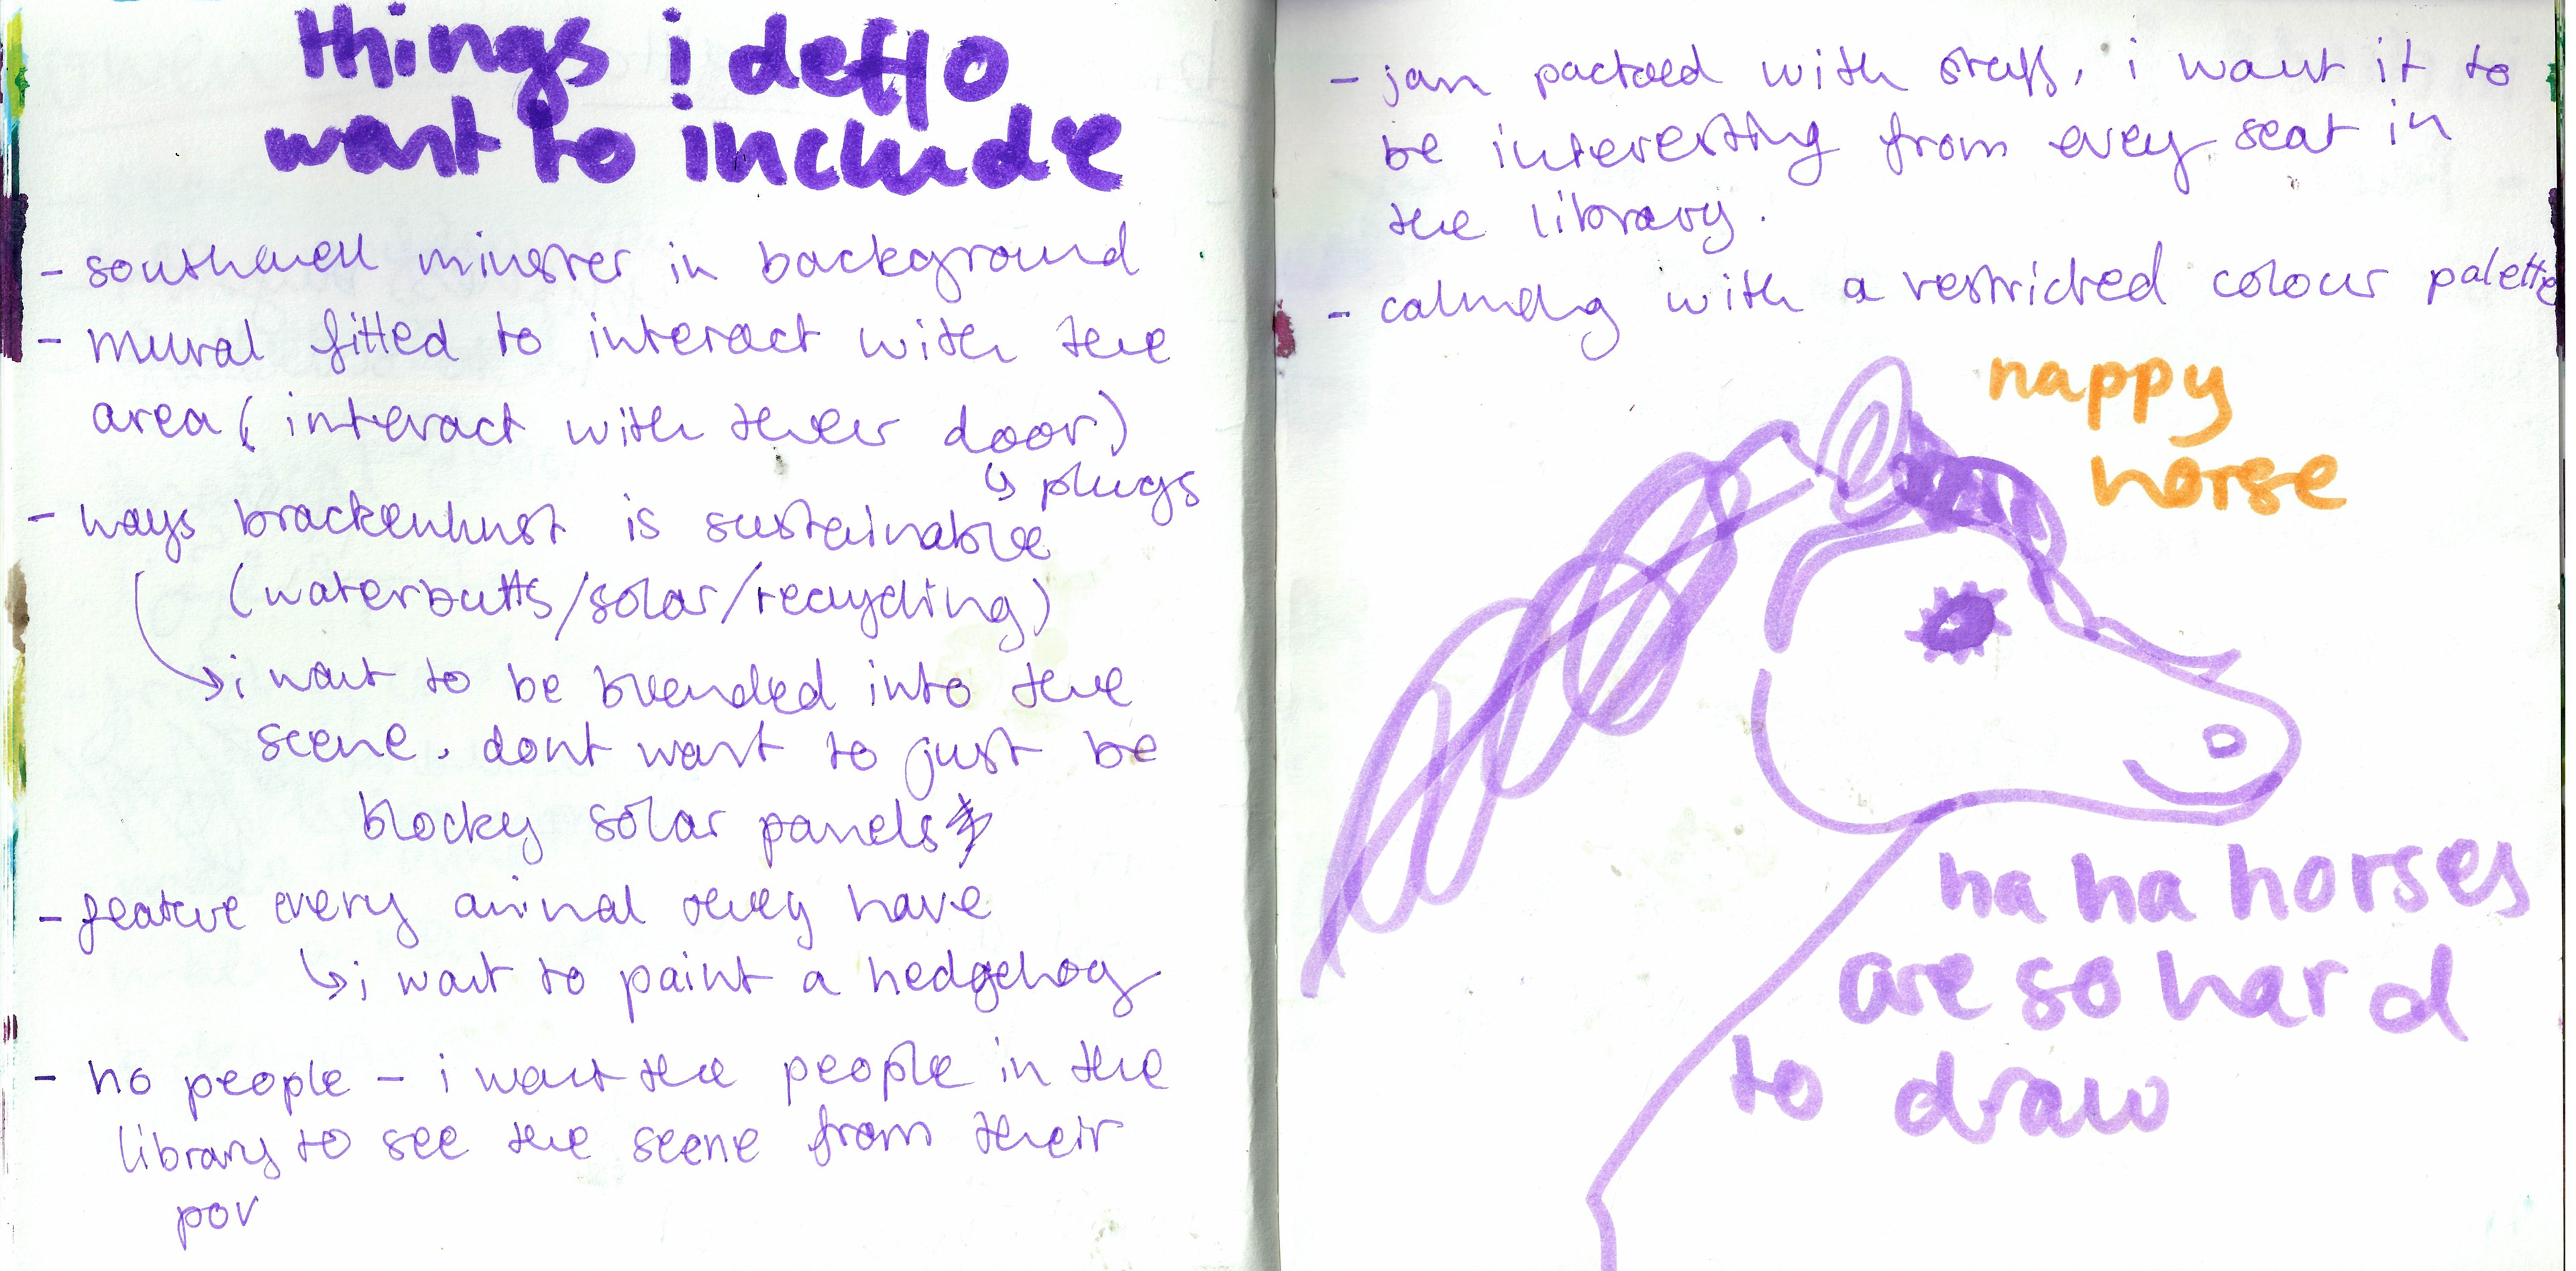 things i deffo
want to include
- southwell minster in background
- mural fitted to interact with the
area (interact with their door)
↳ plugs
- ways brackenhurst is sustainable
(waterbutts/solar/recycling)
↳ i want to be blended into the
scene. dont want to just be
blocky solar panels
- feature every animal they have
↳ i want to paint a hedgehog
- no people - i want the people in the
library to see the scene from their
pov
- jam packed with stuff, i want it to
be interesting from every seat in
the library.
- calming with a restricted colour palette
happy
horse
ha ha horses
are so hard
to draw